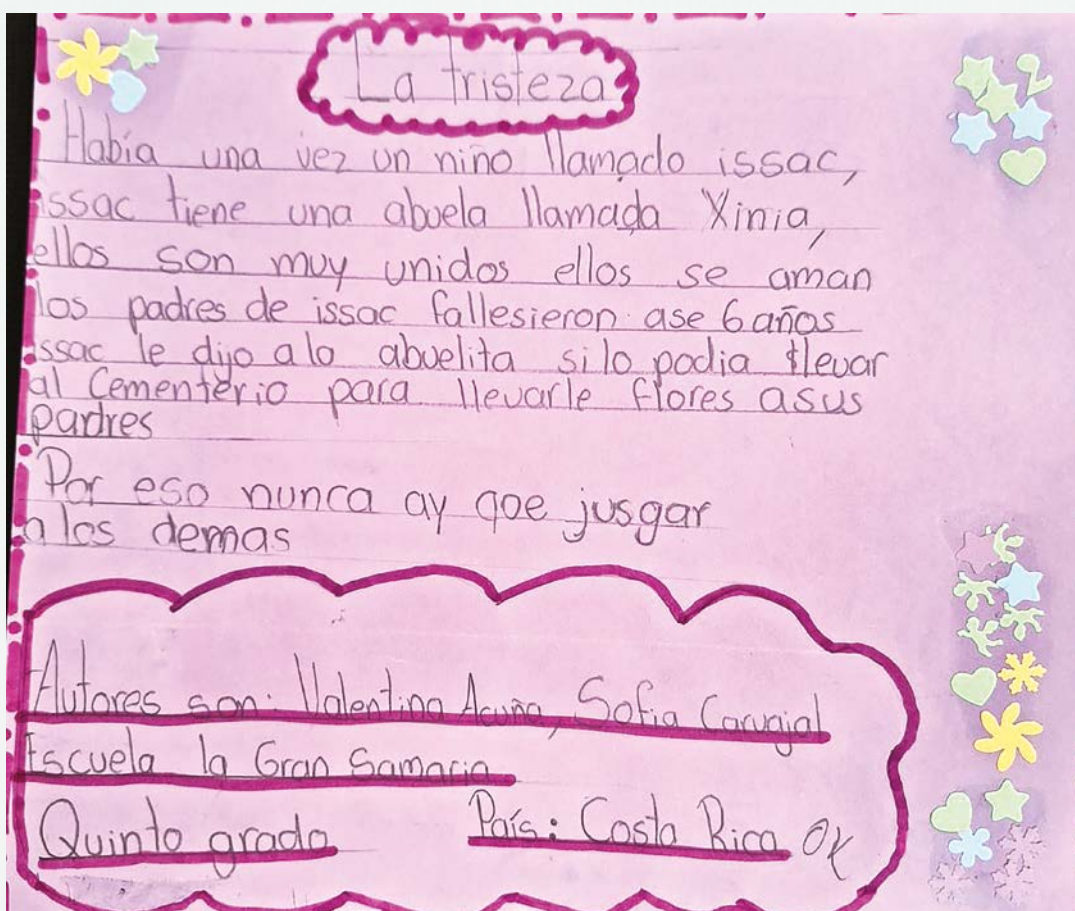 La tristeza
Había una vez un niño llamado issac,
issac tiene una abuela llamada Xinia,
ellos son muy unidos ellos se aman
los padres de issac fallesieron ase 6 años
issac le dijo a lo abuelita si lo podia llevar
al Cementerio para llevarle flores asus
padres
Por eso nunca ay qoe jusgar
a los demas
Autores son: Valentina Acuña, Sofia Carvajal
Escuela la Gran Samaria
Quinto grado País: Costa Rica OK